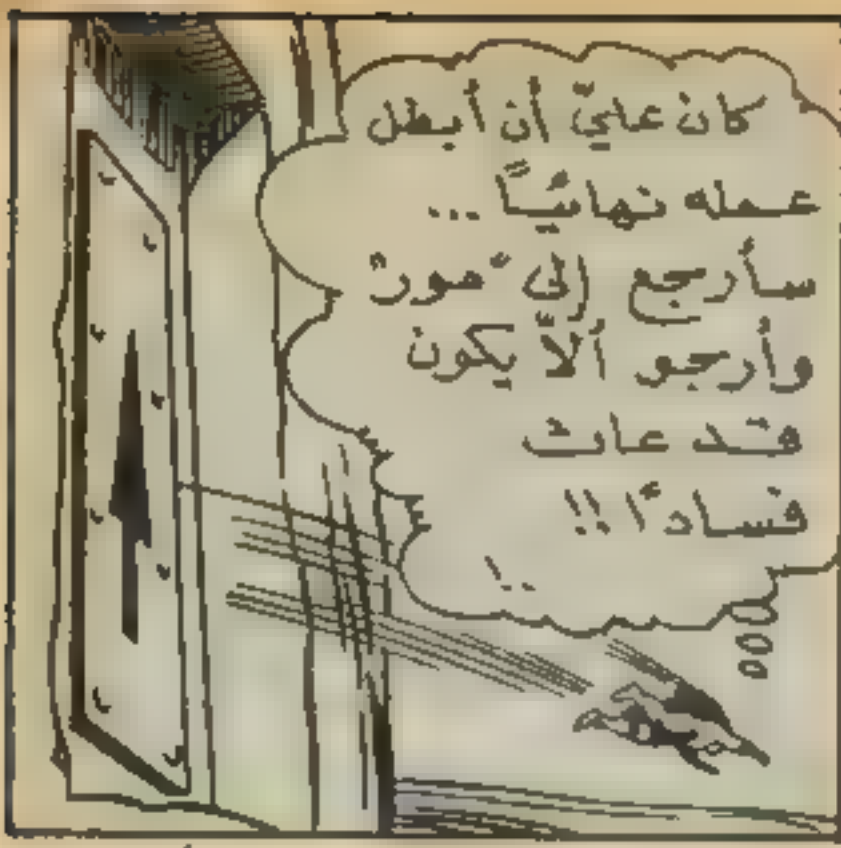 كان عليّ أن أبطل
عمله نهائيًا ...
سأرجع إلى "مور"
وأرجو ألاّ يكون
قد عاث
فسادًا !!